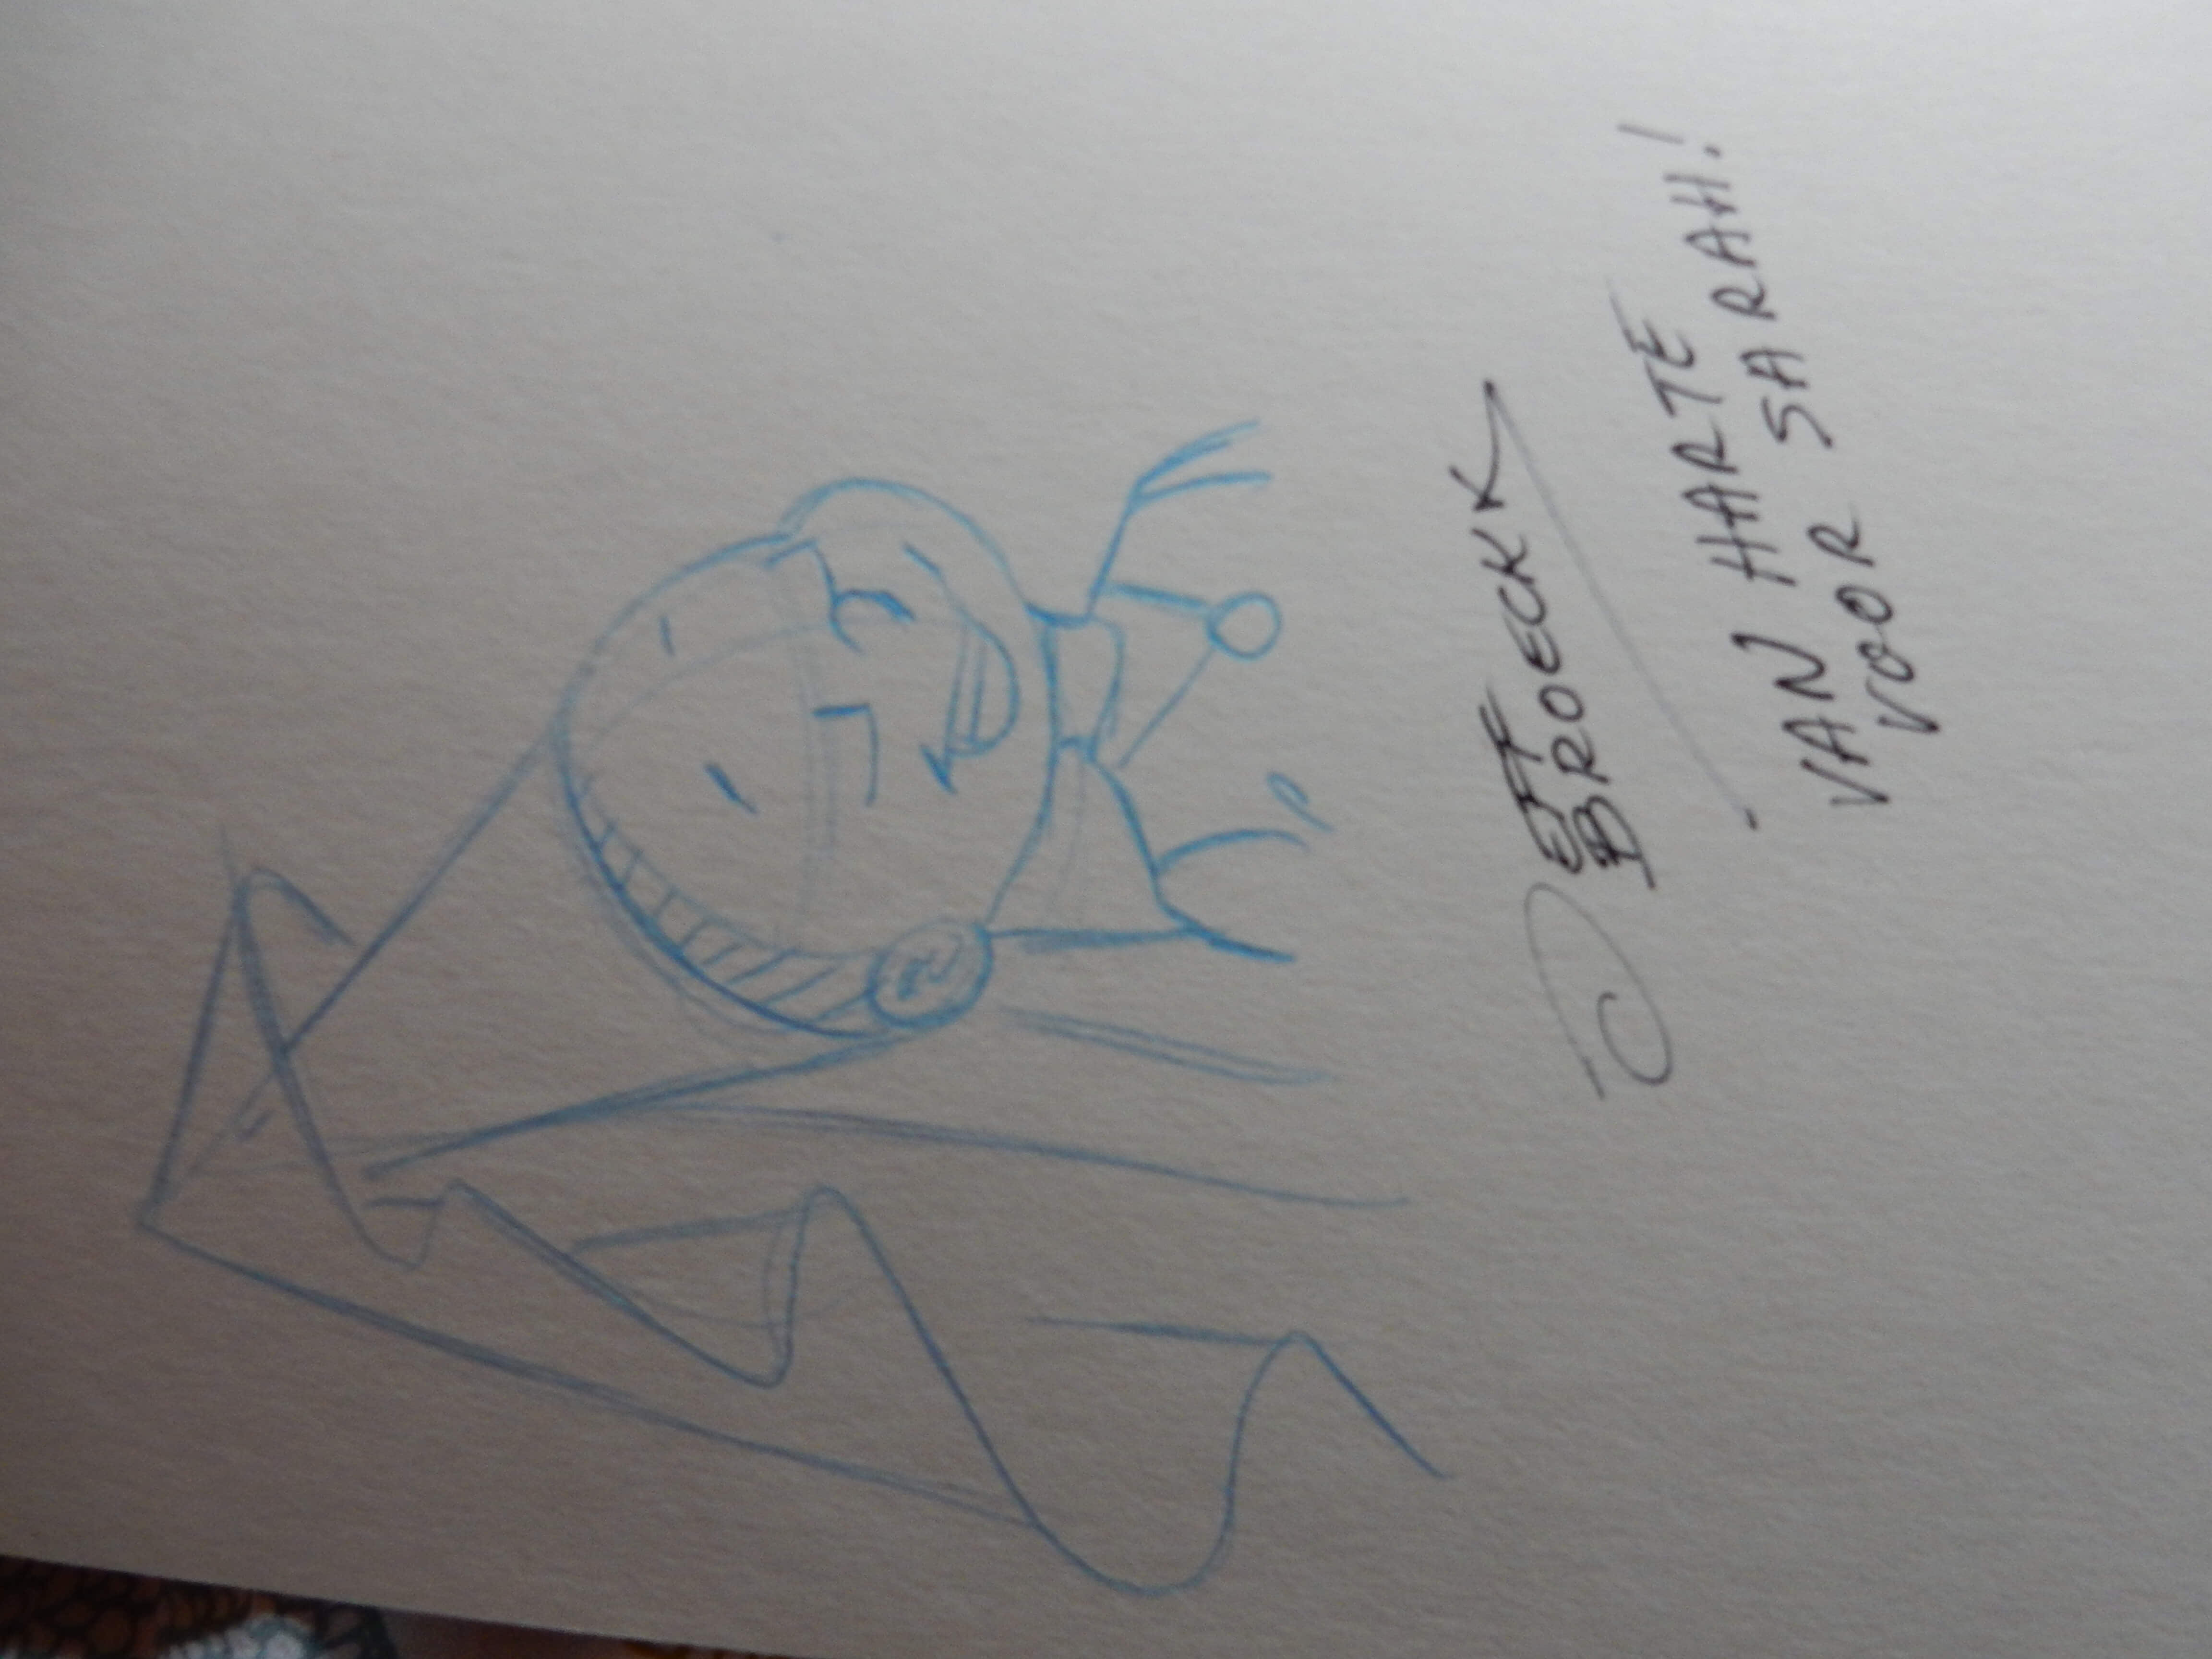 JEFF
BROECKX
VAN HARTE
VOOR SARAH!